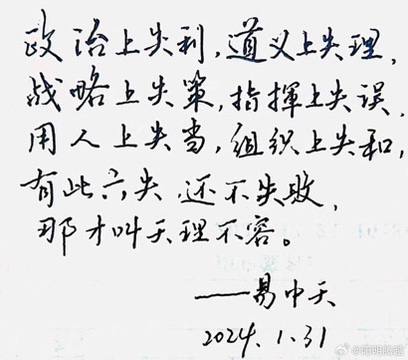 政治上失利,道义上失理,
战略上失策,指挥上失误,
用人上失当,组织上失和,
有此六失,还不失败,
那才叫天理不容。
——易中天
2024.1.31